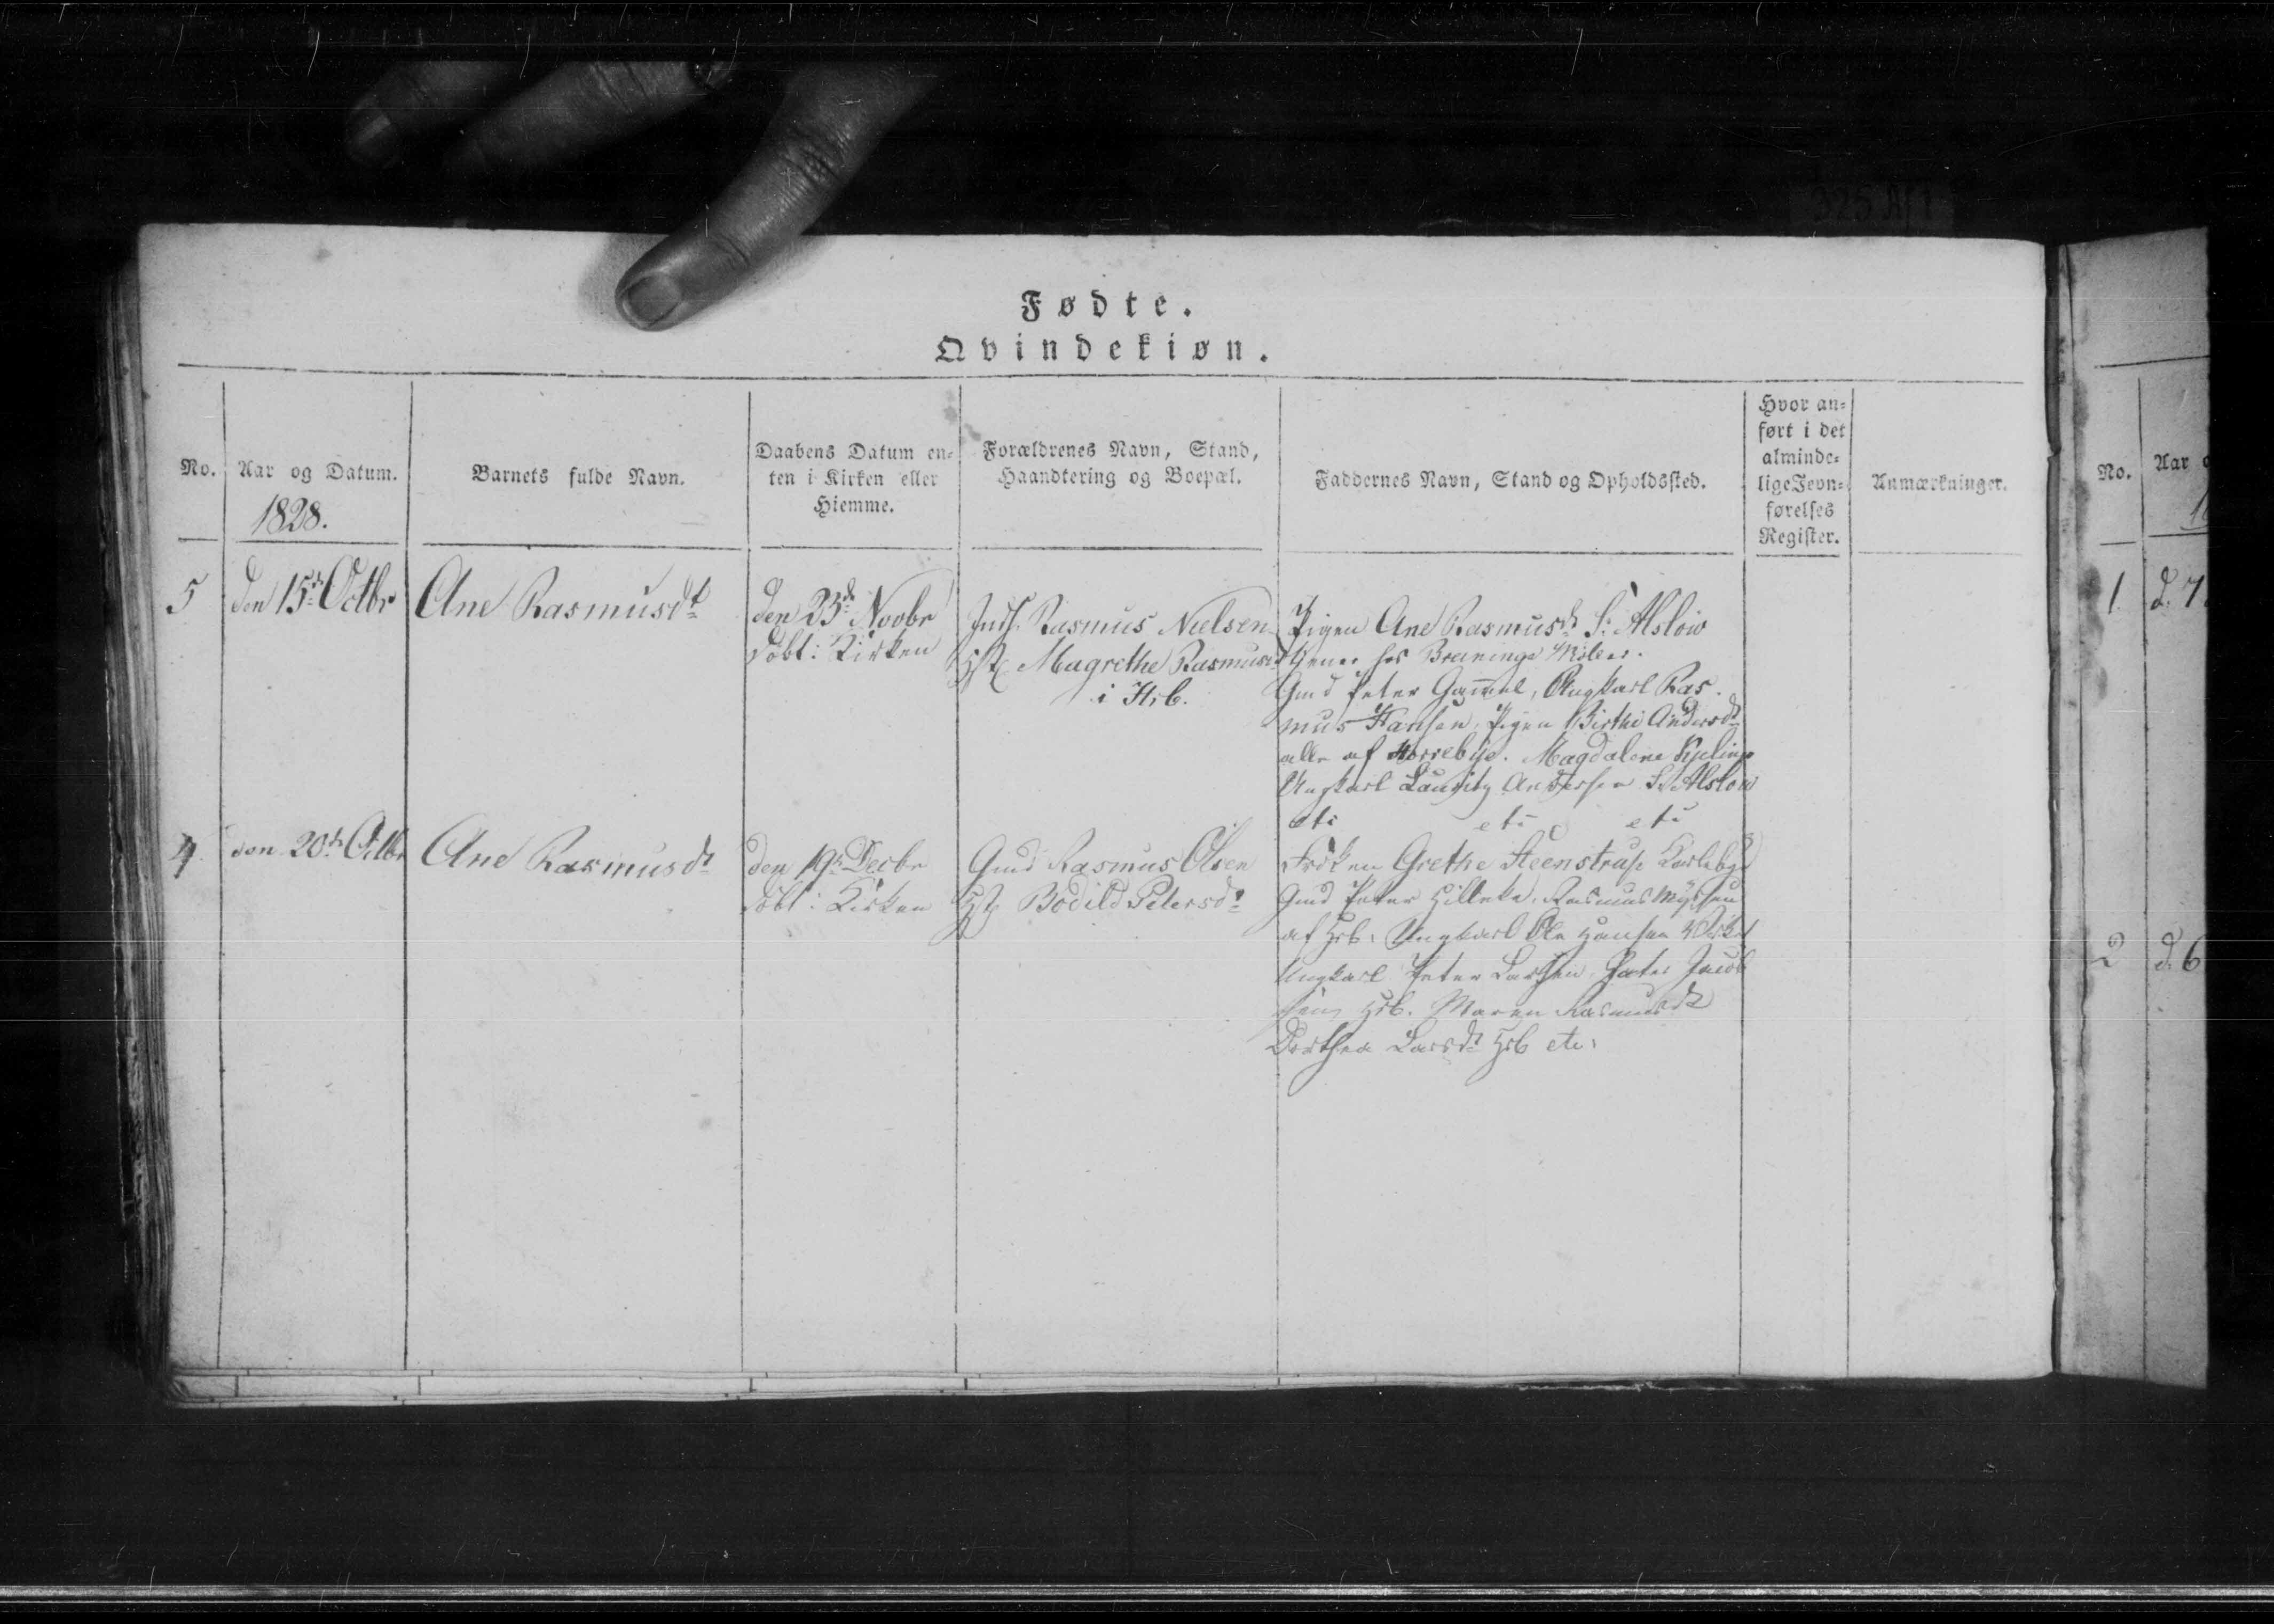 325 A/1
Fødte.
Qvindekiøn.
No.
Aar og Datum.
1828.
Barnets fulde Navn.
Daabens Datum en-
ten i Kirken eller
Hiemme.
Forældrenes Navn, Stand,
Haandtering og Boepæl.
Faddernes Navn, Stand og Opholdssted.
Hvor an-
ført i det
alminde-
lige Jevn-
førelses
Register.
Anmærkninger.
5
den 15de Octbr
Ane Rasmusdt
den 23de Novbr
döbt i Kirken
Inds. Rasmus Nielsen
Hst Magrethe Rasmusdt
i Hrb.
Pigen Ane Rasmusdt S: Alslöw
tjener hos Breininge
Gmd Peter Gammel, Ungkarl Ras
mus Hansen, Pigen Birthe Andersdt
alle af Horrebye. Magdalene
Ungkarl Lauritz Andersen S: Alslow
etc etc etc
4.
den 20de Octbr
Ane Rasmusdt
den 19de Decbr
döbt i Kirken
Gmd Rasmus Olsen
Hst Bodild Petersdt
Fröken Grethe Steenstrup Karlebye
Gmd Peter Rasmus
af Hrb. Ungkarl Ole Hansen
Ungkarl Peter Larsen, Peter Jacob
sen, Hrb. Maren Rasmusdt
Dorthea Larsdt Hrb etc.
No.
Aar
1.
d. 7
2
d. 6